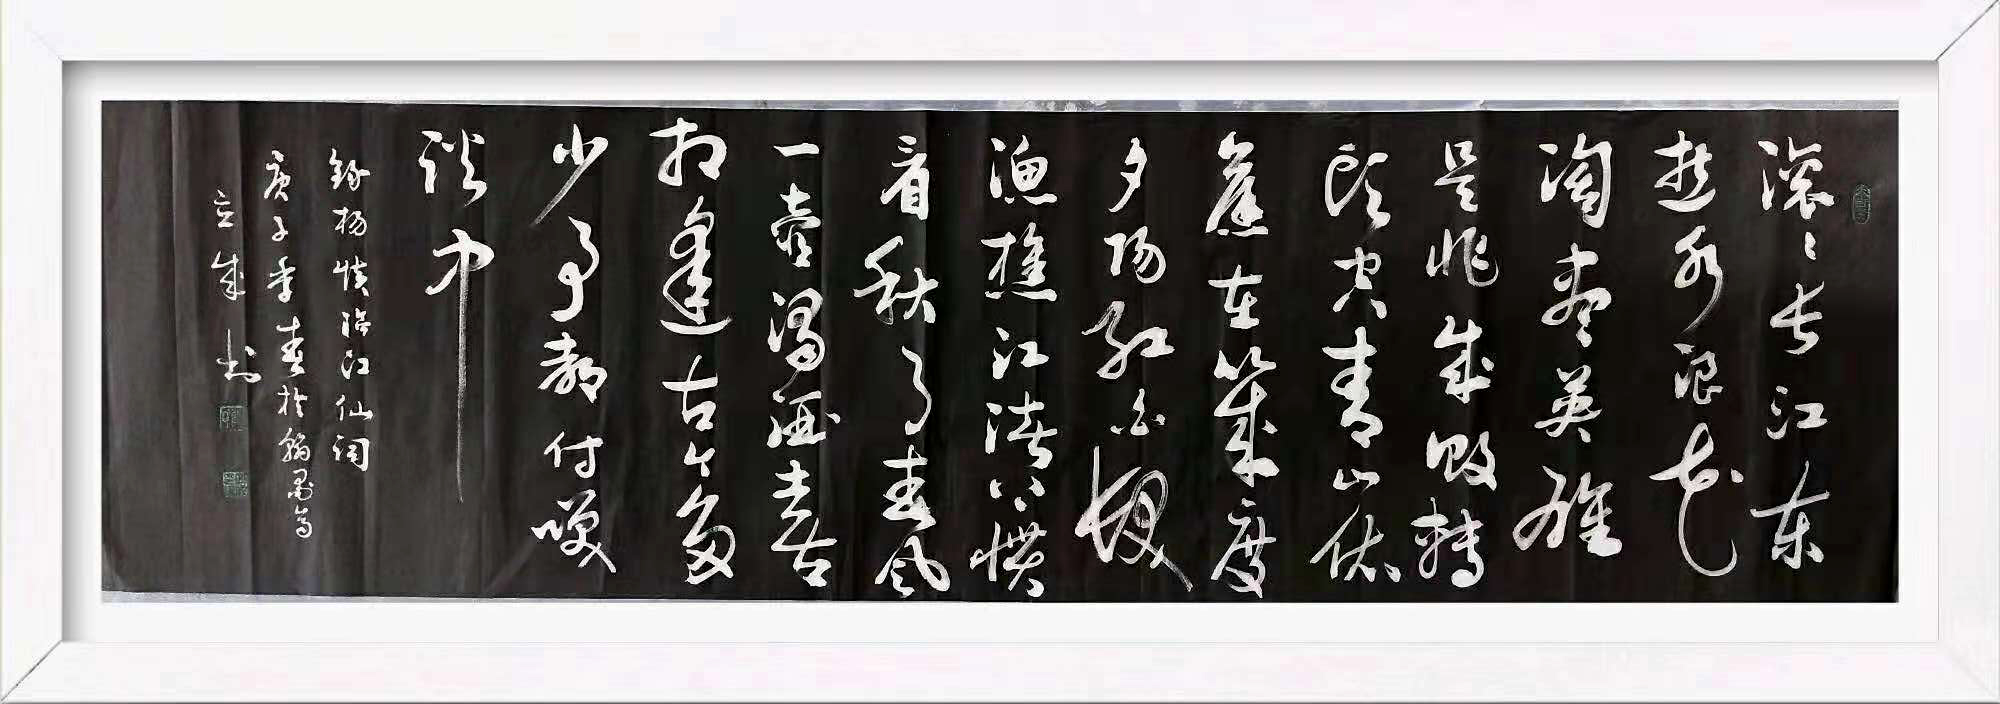 滚〻长江东
逝水浪花
淘尽英雄
是非成败转
头空青山依
舊在幾度
夕阳红白髮
渔樵江渚上惯
看秋月春风
一壶濁酒喜
相逢古今多
少事都付笑
谈中
録杨慎临江仙词
庚子季春於翰墨斋
立成书